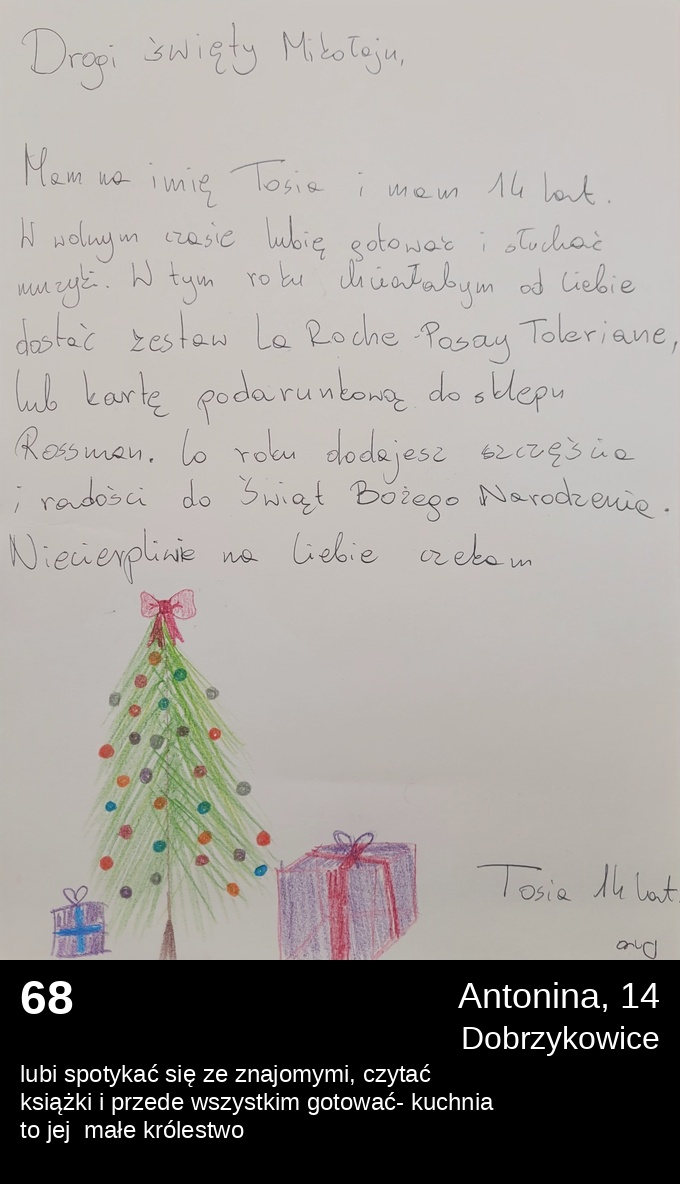 Drogi święty Mikołaju,
Mam na imię Tosia i mam 14 lat.
W wolnym czasie lubię gotować i słuchać
muzyki. W tym roku chciałabym od Ciebie
dostać zestaw La Roche-Posay Toleriane,
lub kartę podarunkową do sklepu
Rossman. Co roku dodajesz szczęścia
i radości do Świąt Bożego Narodzenia.
Niecierpliwie na Ciebie czekam
Tosia 14 lat.
68
Antonina, 14
Dobrzykowice
lubi spotykać się ze znajomymi, czytać
książki i przede wszystkim gotować- kuchnia
to jej  małe królestwo